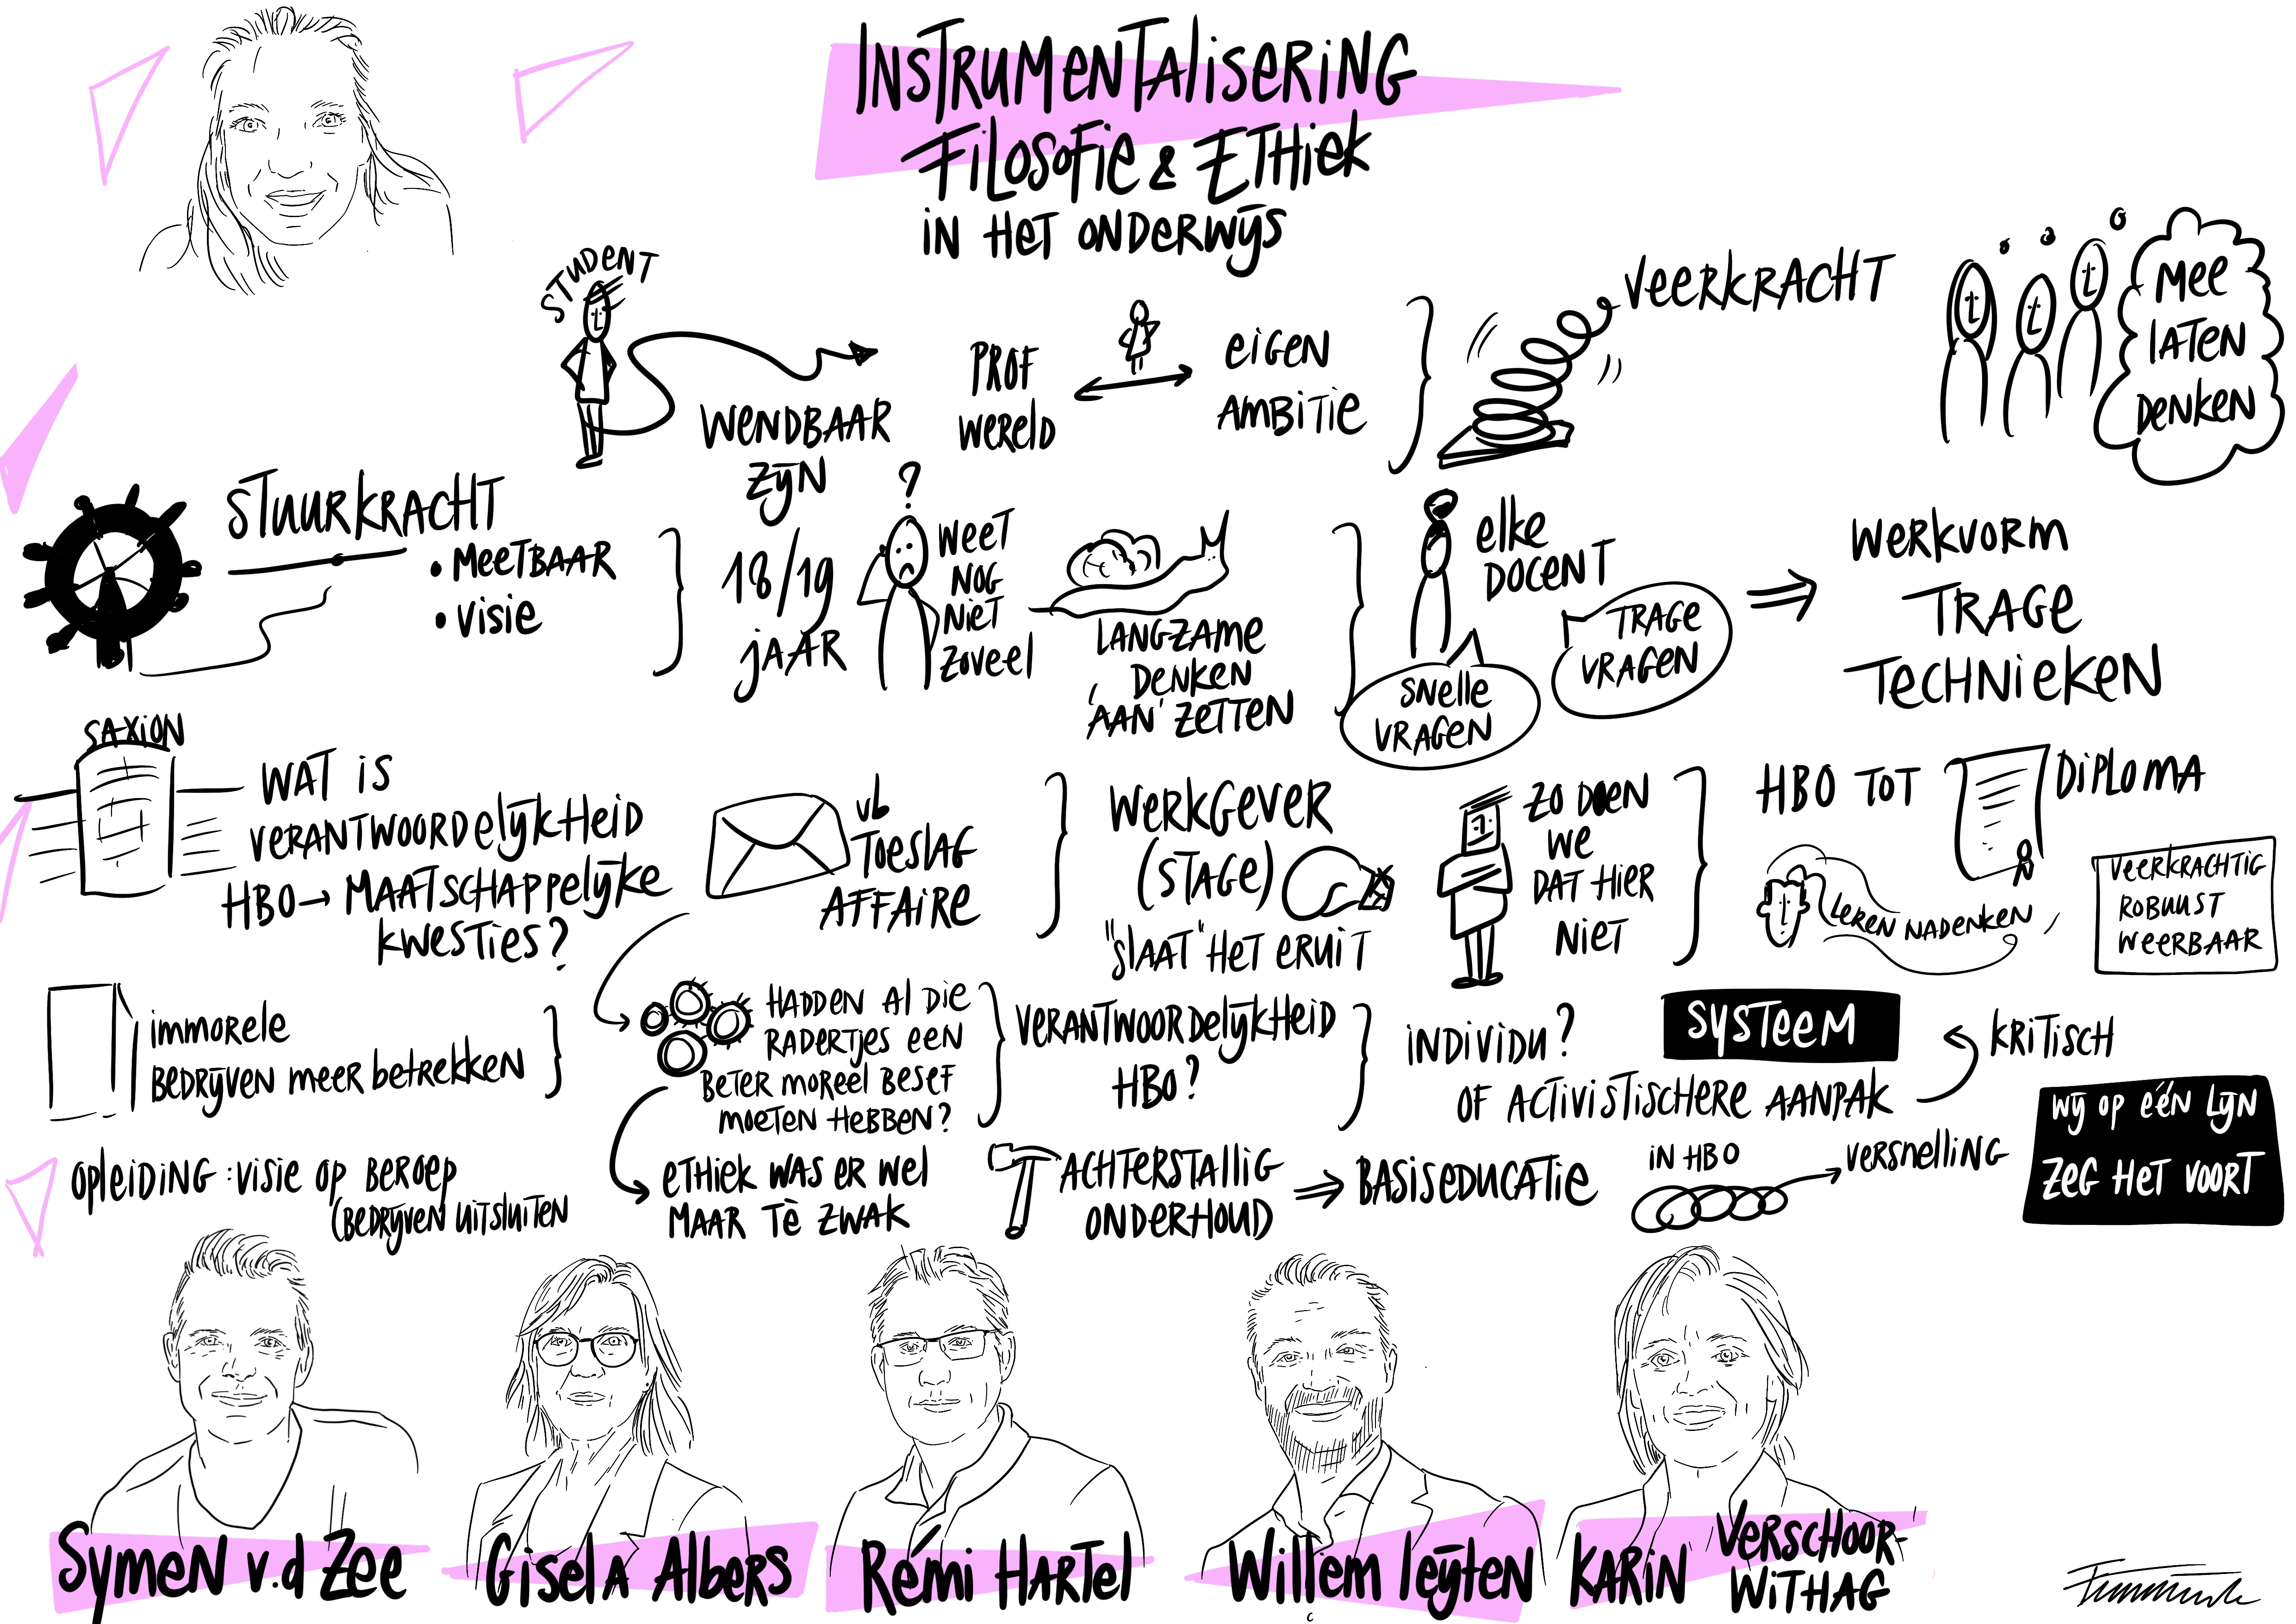 INSTRUMENTALISERING
FILOSOFIE & ETHIEK
IN HET ONDERWIJS
STUDENT
WENDBAAR
ZIJN
PROF
WERELD
EIGEN
AMBITIE
VEERKRACHT
MEE
LATEN
DENKEN
STUURKRACHT
• MEETBAAR
• VISIE
18/19
JAAR
?
WEET
NOG
NIET
ZOVEEL
LANGZAME
DENKEN
'AAN' ZETTEN
ELKE
DOCENT
SNELLE
VRAGEN
TRAGE
VRAGEN
WERKVORM
TRAGE
TECHNIEKEN
SAXION
WAT IS
VERANTWOORDELIJKHEID
HBO → MAATSCHAPPELIJKE
KWESTIES?
vb
TOESLAG
AFFAIRE
WERKGEVER
(STAGE)
"SLAAT" HET ERUIT
ZO DOEN
WE
DAT HIER
NIET
HBO TOT
DIPLOMA
LEREN NADENKEN
VEERKRACHTIG
ROBUUST
WEERBAAR
IMMORELE
BEDRIJVEN MEER BETREKKEN
HADDEN AL DIE
RADERTJES EEN
BETER MOREEL BESEF
MOETEN HEBBEN?
VERANTWOORDELIJKHEID
HBO?
INDIVIDU?
SYSTEEM
OF ACTIVISTISCHERE AANPAK
KRITISCH
WIJ OP ÉÉN LIJN
ZEG HET VOORT
OPLEIDING: VISIE OP BEROEP
(BEDRIJVEN UITSLUITEN
ETHIEK WAS ER WEL
MAAR TÈ ZWAK
ACHTERSTALLIG
ONDERHOUD
⇒ BASISEDUCATIE
IN HBO
VERSNELLING
SYMEN V.D ZEE
GISELA ALBERS
RÉMI HARTEL
WILLEM LEIJTEN
KARIN VERSCHOOR-
WITHAG